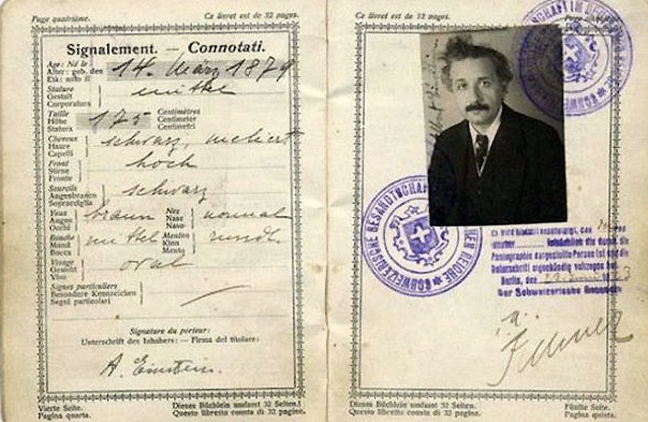 Page quatrième.
Ce livret est de 32 pages.
Signalement. — Connotati.
Age: Né le
Alter: geb. den
Età: nato il
14. März 1879
Stature
Gestalt
Corporatura
mittel
Taille
Höhe
Statura
175
Centimètres
Centimeter
Centimetri
Cheveux
Haare
Capelli
schwarz, meliert
Front
Stirne
Fronte
hoch
Sourcils
Augenbrauen
Sopracciglia
schwarz
Yeux
Augen
Occhi
braun
Nez
Nase
Naso
normal
Bouche
Mund
Bocca
mittel
Menton
Kinn
Mento
rund
Visage
Gesicht
Viso
oval
Signes particuliers
Besondere Kennzeichen
Segni particolari
Signature du porteur:
Unterschrift des Inhabers: — Firma del titolare:
A. Einstein.
Vierte Seite.
Pagina quarta.
Dieses Büchlein umfasst 32 Seiten.
Questo libretto consta di 32 pagine.
Ce livret est de 32 pages.
Page cinquième.
SCHWEIZERISCHE GESANDTSCHAFT IM DEUTSCHEN REICHE
Photographie dargestellte Person ist und die
Unterschrift eigenhändig vollzogen hat
Berlin, den
Der Schweizerische Gesandte
Dieses Büchlein umfasst 32 Seiten.
Questo libretto consta di 32 pagine.
Fünfte Seite.
Pagina quinta.